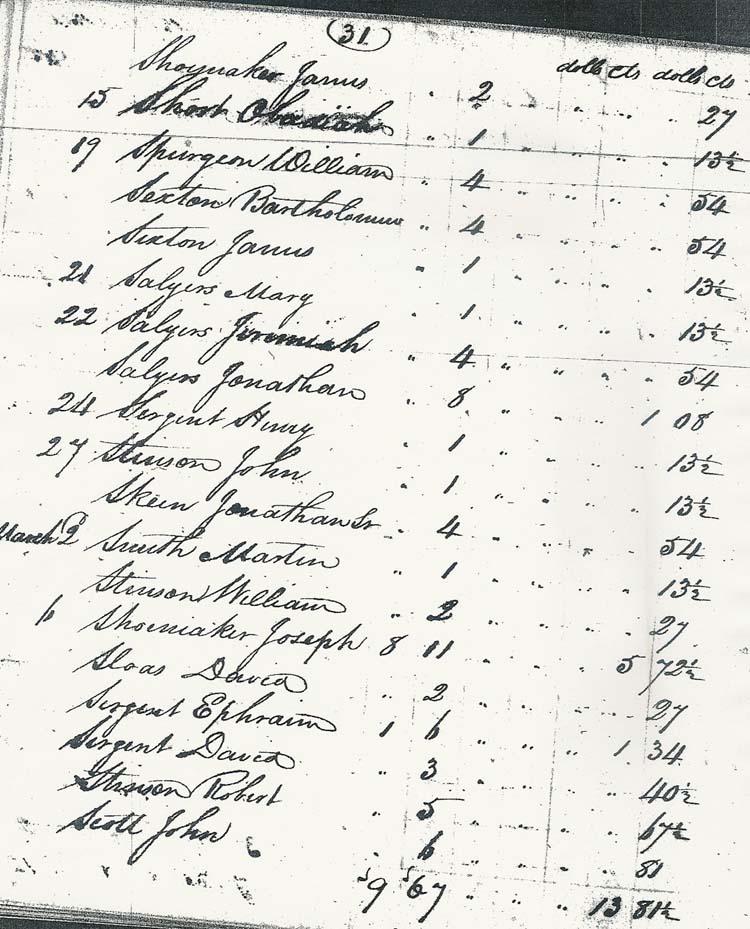 (31)
dolls cts dolls cts
Shoymaker James " 2 " " " 27
15 Short Obadiah " 1 " " " 13½
19 Spurgeon William " 4 " " " 54
Sexton Bartholomew " 4 " " " 54
Sexton James " 1 " " " 13½
21 Salyers Mary " 1 " " " 13½
22 Salyers Jeremiah " 4 " " " 54
Salyers Jonathan " 8 " " 1 08
24 Sergent Henry " 1 " " " 13½
27 Stinson John " 1 " " " 13½
Skeen Jonathan Sr " 4 " " " 54
March 2 Smith Martin " 1 " " " 13½
Stinson William " 2 " " " 27
6 Shoemaker Joseph 8 11 " " 5 72½
Sloas David " 2 " " " 27
Sergent Ephraim 1 6 " " 1 34
Sergent David " 3 " " " 40½
Stinson Robert " 5 " " " 67½
Scott John " 6 " " " 81
9 67 " " 13 81½